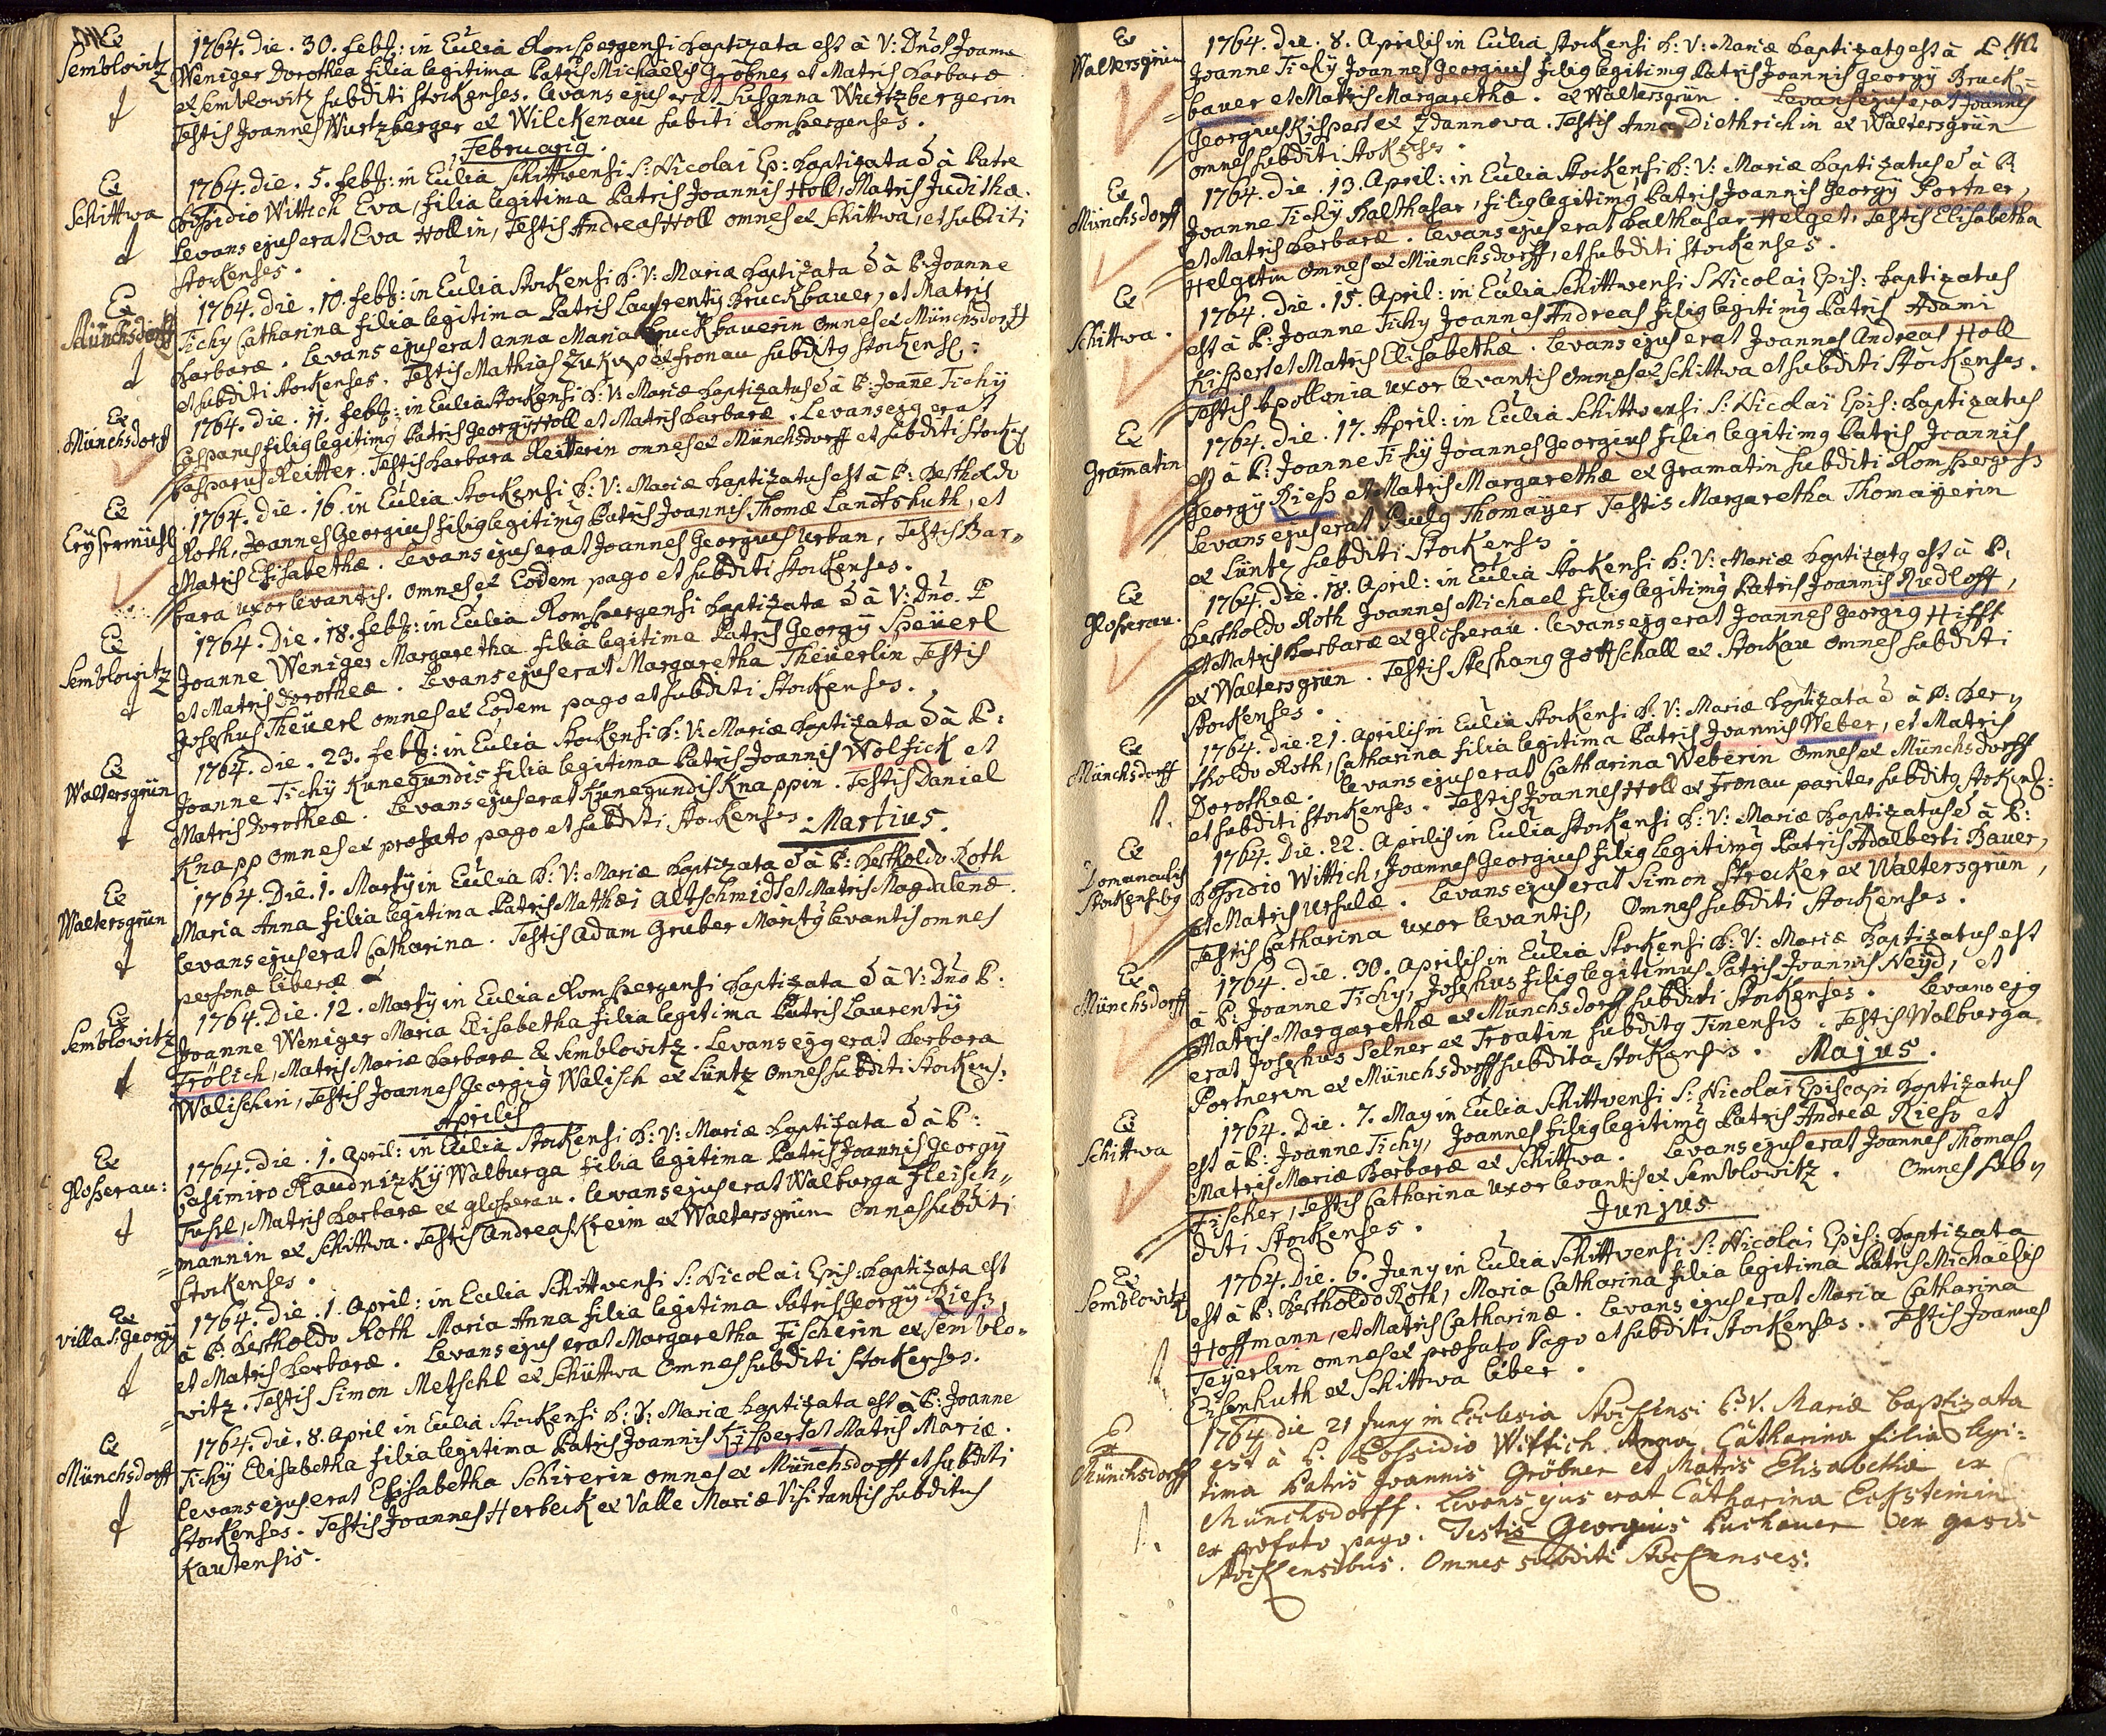 Ex
Semblowitz
1764. Die. 30. febr: in Eccl[es]ia Ronspergensi baptizata est à V: Dno Joanne
Weniger Dorothea filia legitima Patris Michaelis Gröbner et Matris Barbaræ
ex Semblowitz subditi Stockenses. Levans ejus erat Susanna Wurtzbergerin
Testis Joannes Wurtzberger ex Wilckenau subditi Ronspergenses.
Februarius.
Ex
Schittwa
1764. die. 5. febr: in Eccl[es]ia Schittwensi S: Nicolai Ep: baptizata e à Patre
Possidio Wittich Eva, filia legitima Patris Joannis Holl, Matris Judithæ.
Levans ejus erat Eva Hollin, Testis Andreas Holl omnes ex Schittwa, et subditi
Stockenses.
Ex
Münchsdorff
1764. die. 10. febr: in Eccl[es]ia Stockensi B: V: Mariæ baptizata e à P: Joanne
Tichy Catharina filia legitima Patris Laurentÿ Bruckbauer, et Matris
Barbaræ. Levans ejus erat anna Maria Bruckbauerin omnes ex Münchsdorff
et subditi Stockenses. Testis Mathias ex fronau subditus Stockens:
Ex
Münchsdorff
1764. die. 11. febr: in Eccl[es]ia Stockensi B: V: Mariæ baptizatus e à P: Joane Tichÿ
Casparus filius legitimus Patris Georgÿ Holl et Matris Barbaræ. Levans ejus erat
Casparus Reitter. Testis Barbara Reitterin omnes ex Münchsdorff et subditi Stockens
Ex
Erÿsermühl
1764. die. 16. in Eccl[es]ia Stockensi B: V: Mariæ baptizatus est à P: Bertholdo
Roth, Joannes Georgius filius legitimus Patris Joannis Thomæ Landtshuth, et
Matris Elisabethæ. Levans ejus erat Joannes Georgius Urban, Testis Bar=
bara uxor levantis. omnes ex Eodem pago et subditi Stockenses.
Ex
Semblowitz
1764. Die. 18. febr: in Eccl[es]ia Ronspergensi baptizata e à V: Dno. P
Joanne Weniger Margaretha filia legitima Patris Georgÿ Speüerl
et Matris Dorotheæ. Levans ejus erat Margaretha Theüerlin Testis
Josephus Theüerl omnes ex Eodem pago et subditi Stockenses.
Ex
Waltersgrün
1764. die. 23. febr: in Eccl[es]ia Stockensi B: V: Mariæ baptizata e à P:
Joanne Tichÿ Kunegundis filia legitima Patris Joannis Wolfick et
Matris Dorotheæ. Levans ejus erat Kunegundis Knappin. Testis Daniel
Knapp omnes ex præfato pago et subditi Stockenses.
Martius.
Ex
Waltersgrün
1764. Die. 1. Martÿ in Eccl[es]ia B: V: Mariæ baptizata e à P: Bertholdo Roth
Maria Anna filia legitima Patris Mathæi Altschmidt et Matris Magdalenæ.
Levans ejus erat Catharina. Testis Adam Gruber levantis omnes
personæ liberæ
Ex
Semblowitz
1764. Die. 12. Martÿ in Eccl[es]ia Ronspergensi baptizata e à V: Dno P:
Joanne Weniger Maria Elisabetha filia legitima Patris Laurentÿ
Frölich, Matris Mariæ Barbaræ ex Semblowitz. Levans ejus erat Barbara
Walischin, Testis Joannes Georgius Walisch ex Lüntz omnes subditi Stockens:
Aprilis
Ex
Gloserau:
1764. die. 1. April: in Eccl[es]ia Stockensi B: V: Mariæ baptizata e à P:
Casimiro Raudnizkÿ Walburga filia legitima Patris Joannis Georgÿ
Fuhrl, Matris Barbaræ ex gloserau. Levans ejus erat Walburga Fleisch=
mannin ex Schittwa. Testis Andreas Kreim ex Waltersgrün omnes subditi
Stockenses.
Ex
villa S: Georgÿ
1764. die. 1. April: in Eccl[es]ia Schittwensi S: Nicolai Epis: baptizata est
à P: Bertholdo Roth Maria Anna filia legitima Patris Georgÿ Riess,
et Matris Barbaræ. Levans ejus erat Margaretha Fischerin ex Semblo=
witz. Testis Simon Metschl ex Schüttwa omnes subditi Stockenses.
Ex
Münchsdorff
1764. die. 8. April in Eccl[es]ia Stockensi B: V: Mariæ baptizata est à P: Joanne
Tichÿ Elisabetha filia legitima Patris Joannis Kisperl et Matris Mariæ.
Levans ejus erat Elisabetha Schirerin omnes ex Münchsdorff et subditi
Stockenses. Testis Joannes Herbeck ex Valle Mariæ Visitantis subditus
Kautensis.
Ex
Waltersgrün
1764. die. 8. Aprilis in Eccl[es]ia Stockensi B: V: Mariæ baptizatus est à P.
Joanne Tichÿ Joannes Georgius filius legitimus Patris Joannis Georgÿ Bruck=
bauer et Matris Margarethæ. ex Waltersgrün. Levans ejus erat Joannes
Georgius Kisperl ex Zdannowa. Testis Anna Diethrichin ex Waltersgrün
omnes subditi Stokenses.
Ex
Münchsdorff
1764. die. 13. April: in Eccl[es]ia Stockensi B: V: Mariæ baptizatus e à P:
Joanne Tichÿ Balthasar, filius legitimus Patris Joannis Georgÿ Portner,
et Matris Barbaræ. Levans ejus erat Balthasar Helget, Testis Elisabetha
Helgetin omnes ex Münchsdorff, et subditi Stockenses.
Ex
Schittwa.
1764. Die. 15. April: in Eccl[es]ia Schittwensi S Nicolai Epis: baptizatus
est à P: Joanne Tichy Joannes Andreas filius legitimus Patris Adami
Kisperl et Matris Elisabethæ. Levans ejus erat Joannes Andreas Holl
Testis Apollonia uxor levantis omnes ex Schittwa et subditi Stockenses.
Ex
Gramatin
1764. Die. 17. April: in Eccl[es]ia Schittwensi S: Nicolai Epis: baptizatus
est à P: Joanne Tichÿ Joannes Georgius filius legitimus Patris Joannis
Georgÿ Riess et Matris Margarethæ ex Gramatin subditi Ronspergens
Levans ejus erat Paulus Thomaÿer Testis Margaretha Thomaÿerin
ex Lüntz subditi Stockenses.
Ex
Gloserau.
1764. Die. 18. April: in Eccl[es]ia Stockensi B: V: Mariæ baptizatus est à P.
Bertholdo Roth Joannes Michael filius legitimus Patris Joannis Rudloff,
et Matris Barbaræ ex gloserau. levans ejus erat Joannes Georgius Hifft
ex Waltersgrün. Testis Stephang gottschall ex Stockau omnes subditi
Stockenses.
Ex
Münchsdorff
1764. die. 21. Aprilis in Eccl[es]ia Stockensi B: V: Mariæ baptizata e à P: Ber=
tholdo Roth, Catharina filia legitima Patris Joannis Weber, et Matris
Dorotheæ. Levans ejus erat Catharina Weberin omnes ex Münchsdorff
et subditi Stockenses. Testis Joannes Holl ex Fronau pariter subditus Stokens:
Ex
Domunculis
Stockensibus
1764. Die. 22. Aprilis in Eccl[es]ia Stockensi B: V: Mariæ baptizatus e à P:
Possidio Wittich, Joannes Georgius filius legitimus Patris Adalberti Bauer,
et Matris Ursulæ. Levans ejus erat Simon Strecker ex Waltersgrün,
Testis Catharina uxor levantis, omnes subditi Stockenses.
Ex
Münchsdorff
1764. Die. 30. Aprilis in Eccl[es]ia Stockensi B: V: Mariæ baptizatus est
à P: Joanne Tichy, Josephus filius legitimus Patris Joannis Neÿd, et
Matris Margarethæ ex Münchsdorff subditi Stockenses. Levans ejus
erat Josephus Selner ex Troatin subditus Tinensis. Testis Walburga
Portnerin ex Münchsdorff subdita Stockensis.
Majus.
Ex
Schittwa
1764. Die. 7. May in Eccl[es]ia Schittwensi S: Nicolai Episcopi baptizatus
est à P: Joanne Tichy, Joannes filius legitimus Patris Andreæ Riess et
Matris Mariæ Barbaræ ex Schittwa. Levans ejus erat Joannes Thomas
Fischer, Testis Catharina uxor levantis ex Semblowitz. Omnes sub=
diti Stockenses.
Junius
Ex
Semblowitz
1764. Die. 6. Juny in Eccl[es]ia Schittwensi S: Nicolai Epis: baptizata
est à P: Bertholdo Roth, Maria Catharina filia legitima Patris Michaelis
Hoffmann, et Matris Catharinæ. Levans ejus erat Maria Catharina
Teÿerlin omnes ex præfato Pago et subditi Stockenses. Testis Joannes
Eisenhuth ex Schittwa liber.
Ex
Münchsdorff
1764 die 21 Juny in Ecclesia Stockensi B. V. Mariæ baptizata
est à P. Possidio Wittich Anna Catharina filia legi=
tima Patris Joannis Gröbner et Matris Elisabethæ ex
Münchsdorff. Levans ejus erat Catharina Ecksteinin
ex præfato pago. Testis Georgius Puchauer ex
Stockensibus. Omnes subditi Stockenses.